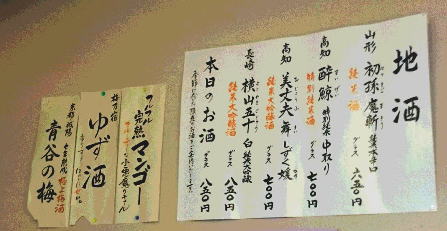 地酒
山形 初孫 魔斬 純米本辛口
純米酒 グラス 六五〇円
高知 酔鯨 特別純米 中取り
特別純米酒 グラス 七〇〇円
高知 美丈夫 舞 しずく媛
純米大吟醸酒 グラス 七〇〇円
長崎 横山五十 白 純米大吟醸
純米大吟醸酒 グラス 八五〇円
本日のお酒 グラス 八五〇円
フルフル 完熟マンゴー
梅乃宿
ゆず酒
京都 城陽
青谷の梅